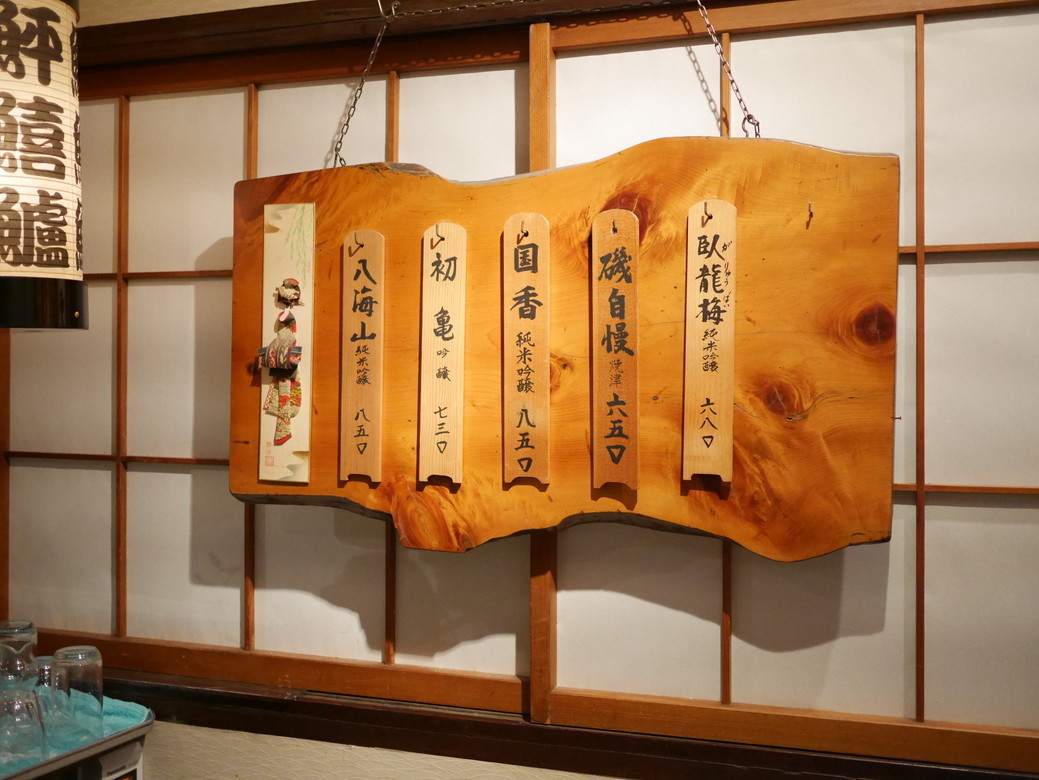 臥龍梅 純米吟醸 六八〇
がりゅうばい
磯自慢 焼津 六五〇
国香 純米吟醸 八五〇
初亀 吟醸 七三〇
八海山 純米吟醸 八五〇
鮃
鱚
鱸